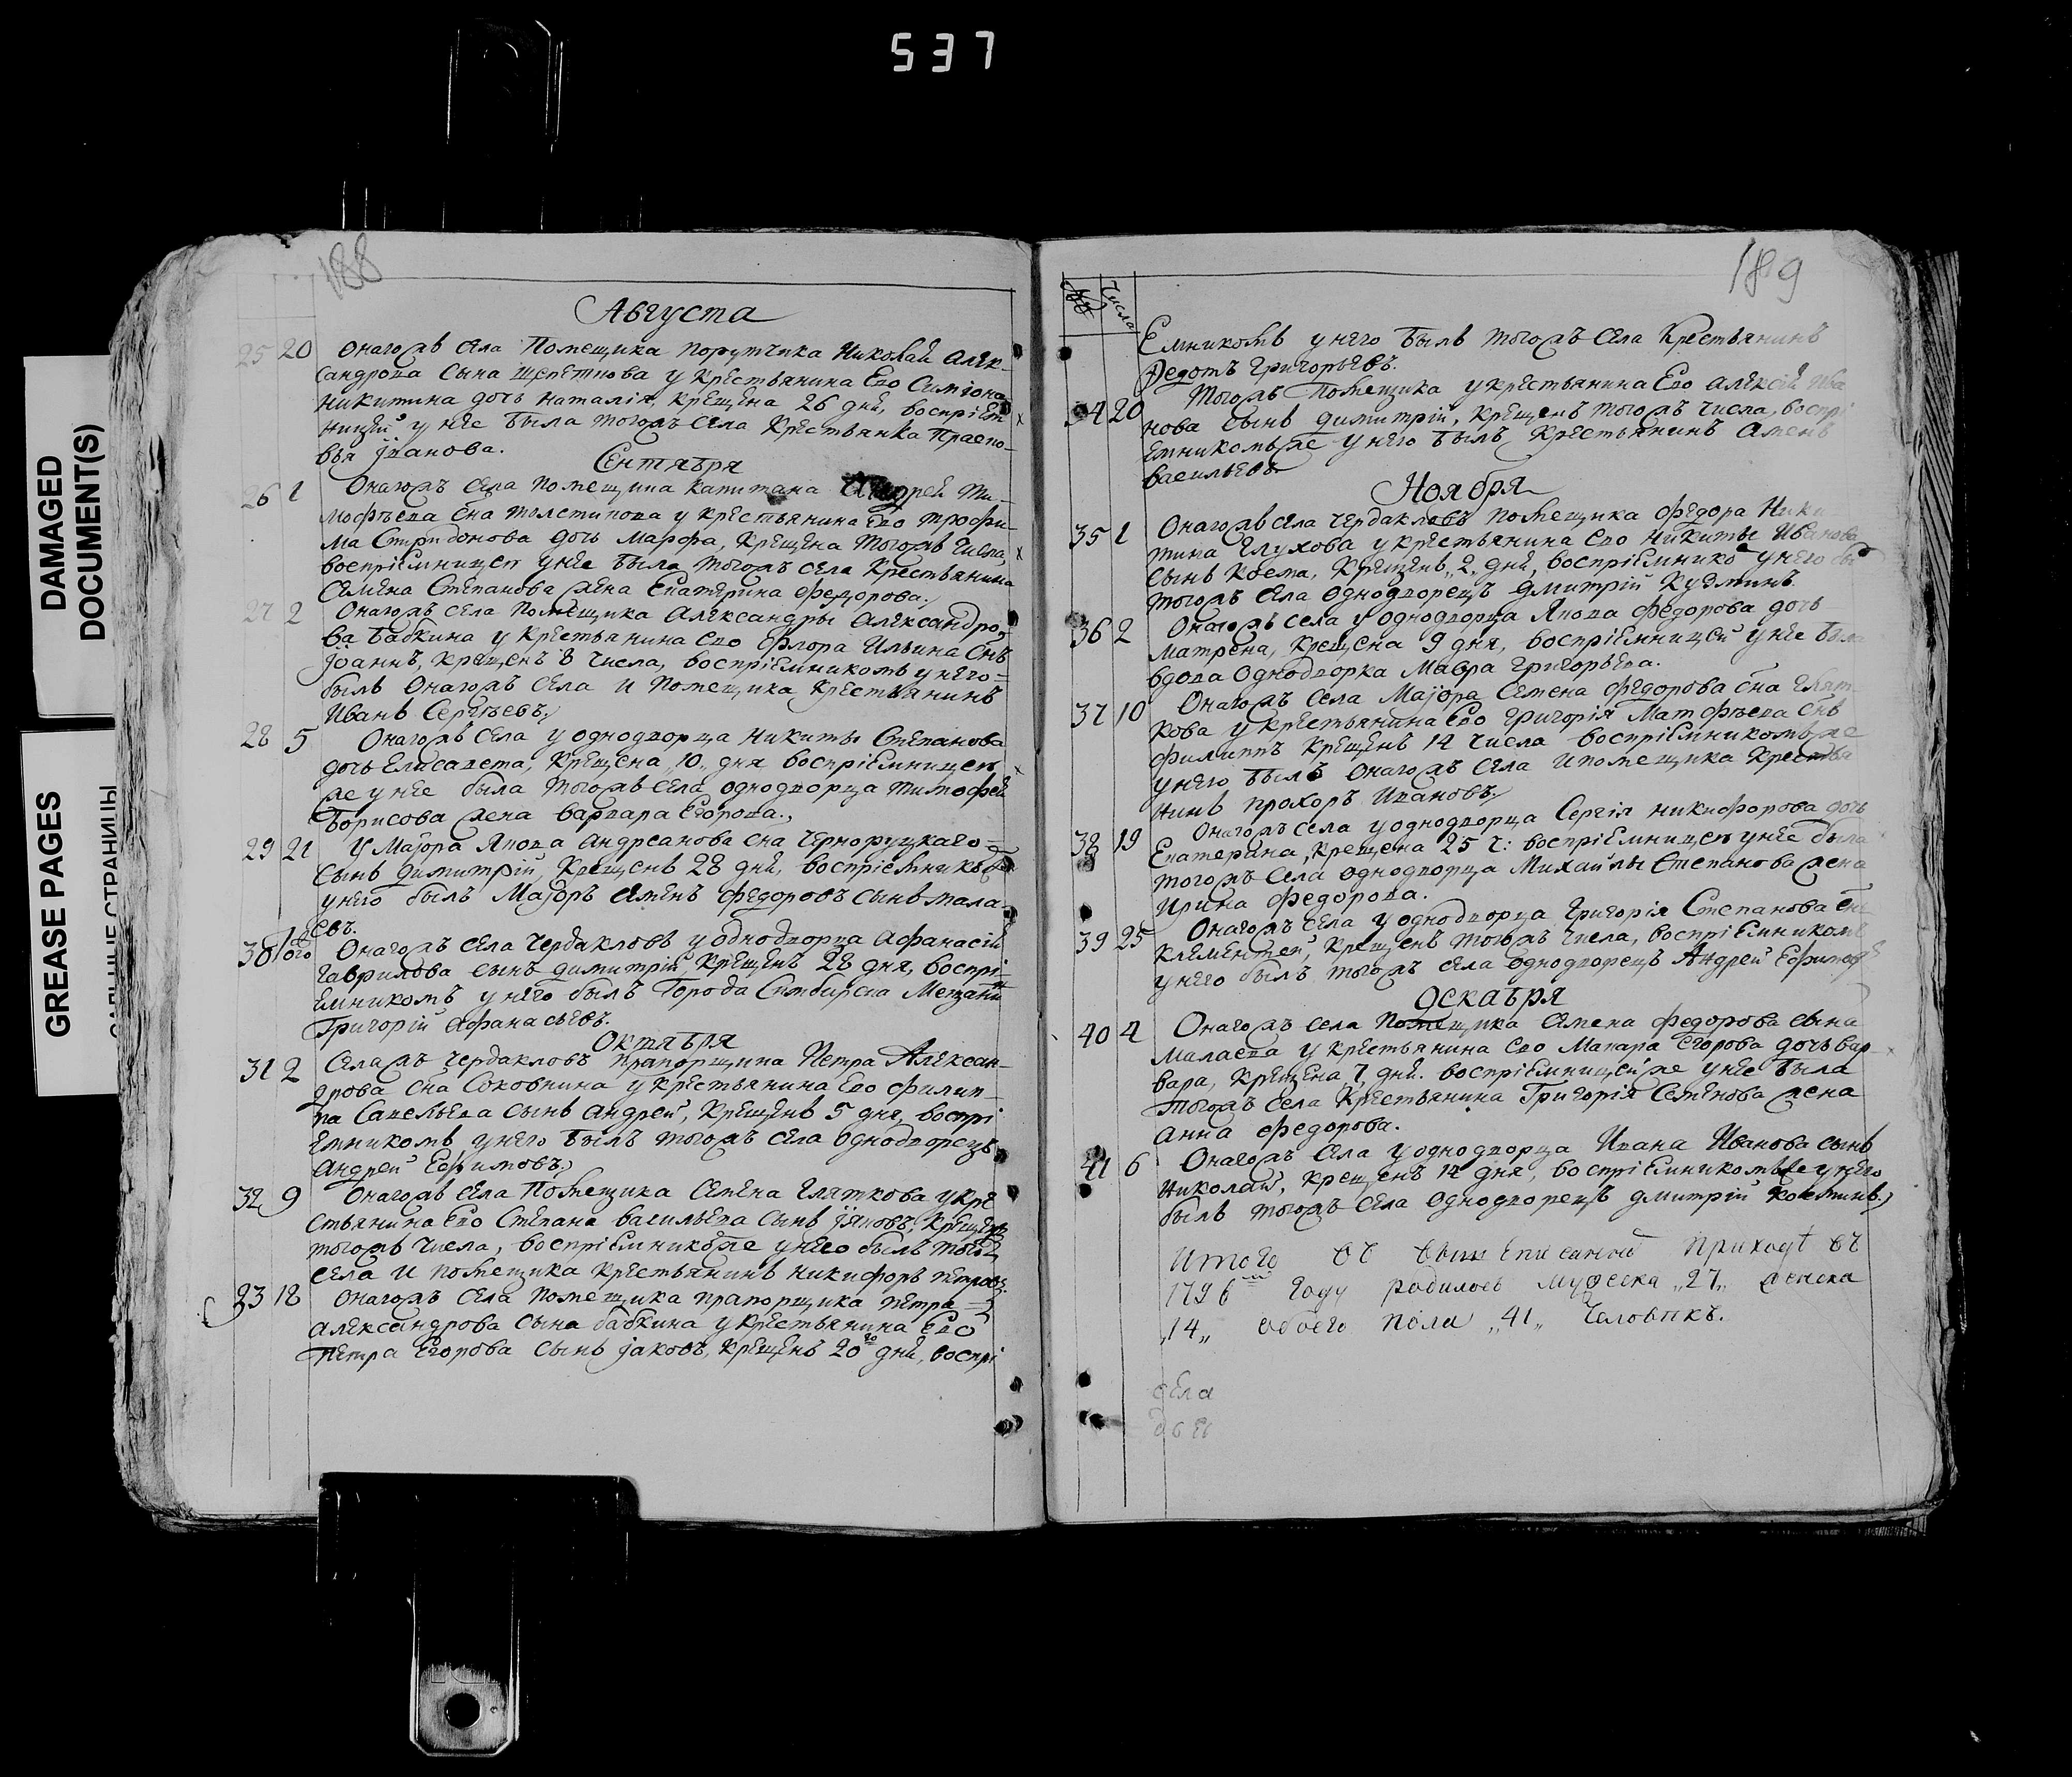 537
DAMAGED
DOCUMENT(S)
GREASE PAGES
188
Августа
25 20 Онагожъ села Помещика порутчика Николай Алек-
сандрова сына Щепетнова у крестьянина Ево Симіона
Никитина дочь наталія, крещена 26 дня, воспріем
ницей у нее была тогожъ села крестьянка Праско-
вья Іванова.
Сентября
26 1 Онагожъ села помещика капитана Андрей Ти-
мофѣева сна толстикова у крестьянина Ево трофи-
ма Спиридонова дочь марфа, крещена тогожъ числа,
воспріемницею унее была тогожъ села крестьянина
Семена Степанова жена Екатерина федорова.
27 2 Онагожъ села помещика Александры Александро-
ва бабкина у крестьянина ево Флора Ильина снъ
Іоаннъ, крещенъ 8 числа, воспріемникомъ у него
былъ Онагожъ села и помещика крестьянинъ
Иванъ Сергѣевъ
28 5 Онагожъ села у однодворца Никиты Степанова
дочь Елисавета, крещена 10 дня воспріемницею
же у нее была тогожъ села однодворца тимофей
Борисова жена варвара Егорова.
29 21 У Маіора Якова андреанова сна Чернoруцкаго
сынъ димитрій, крещенъ 28 дня, воспріемникомъ
унего былъ Маіоръ Семенъ федоровъ сынъ мала-
евъ.
30 того Онагожъ села Чердакловъ у однодворца Афанасій
Гаврилова сынъ димитрій, крещенъ 28 дня, воспрі-
емникомъ у него былъ города Симбирска Мещани
Григорій афанасьевъ.
Октября
31 2 Селажъ Чердакловъ прапорщика Петра Алексан-
дрова сна Соковнина у крестьянина Ево филип-
па Савельева сынъ андрей, крещенъ 5 дня, воспрі
емникомъ у него былъ тогожъ села однодворецъ
андрей Ефимовъ
32 9 Онагожъ села Помещика Семена Гляткова укре
стьянина Ево Степана васильева сынъ Іяковъ, крещенъ
тогожъ числа, воспріемникомже у него былъ тогожъ
села и помещика крестьянинъ никифоръ петровъ.
33 18 Онагожъ села помещика прапорщика петра
александрова сына бабкина у крестьянина Ево
петра Егорова сынъ Іаковъ, крещенъ 20го дня, воспрі
189
№ Числа
Емникомъ у него былъ тогожъ села крестьянинъ
Федотъ Григорьевъ.
34 20 Тогожъ помещика у крестьянина Ево алексій Ива
нова сынъ димитрій, крещенъ тогожъ числа, воспрі
емникомъже у него былъ крестьянинъ Аменъ
васильевъ
Ноября
35 1 Онагожъ села чердакловъ помещика федора Ники
тина Глухова у крестьянина Ево Никиты Иванова
сынъ Косма, крещенъ 2 дня, воспріемнико унего бы
тогожъ села однодворецъ Дмитрій Кузминъ
36 2 Онагожъ села у однодворца Якова федорова дочь
матрена, крещена 9 дня, воспріемницей у нее была
вдова однодворка Мавра Григорьева.
37 10 Онагожъ села Маіора Семена федорова сна Глят
кова у крестьянина Ево григорія Матфѣева снъ
филиппъ крещенъ 14 числа воспріемникомъже
унего былъ онагожъ села и помещика крестья
нинъ прохоръ Ивановъ
38 19 Онагожъ села у однодворца Сергія никифорова дочь
Екатерина, крещена 25 ч: воспріемницею унее была
тогожъ села однодворца Михайлы Степанова жена
Ирина федорова.
39 25 Онагожъ села у однодворца Григорія Степанова снъ
климентей, крещенъ тогожъ числа, воспріемникомъ
у него былъ тогожъ села однодворецъ Андрей Ефимовъ
Декабря
40 4 Онагожъ села помещика Семена федорова сына
малаева у крестьянина Ево макара Егорова дочь вар-
вара, крещена 7 дня. воспріемницейже у нее была
тогожъ села крестьянина Григорія Семенова жена
анна федорова.
41 6 Онагожъ села у однодворца Ивана Иванова сынъ
николай, крещенъ 14 дня, воспріемникомъже у него
былъ тогожъ села однодворецъ дмитрій косминъ.
Итого въ вышеписанной приходѣ въ
1796м году родилось мужеска „27„ женска
„14„ обоего пола „41„ человѣкъ.
села